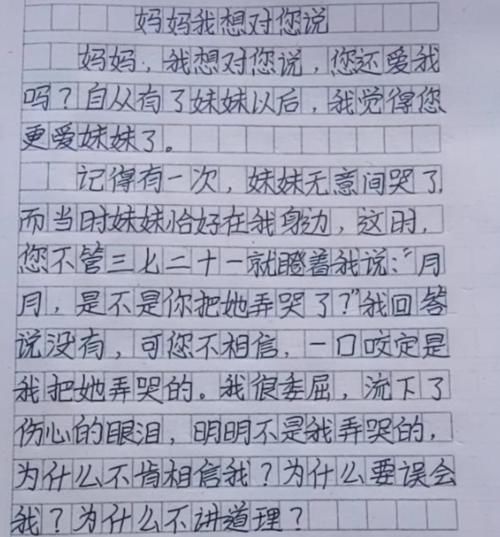 妈妈我想对您说
妈妈，我想对您说，您还爱我
吗？自从有了妹妹以后，我觉得您
更爱妹妹了。
记得有一次，妹妹无意间哭了，
而当时妹妹恰好在我身边，这时，
您不管三七二十一就瞪着我说：“月
月，是不是你把她弄哭了？”我回答
说没有，可您不相信，一口咬定是
我把她弄哭的。我很委屈，流下了
伤心的眼泪，明明不是我弄哭的，
为什么不肯相信我？为什么要误会
我？为什么不讲道理？